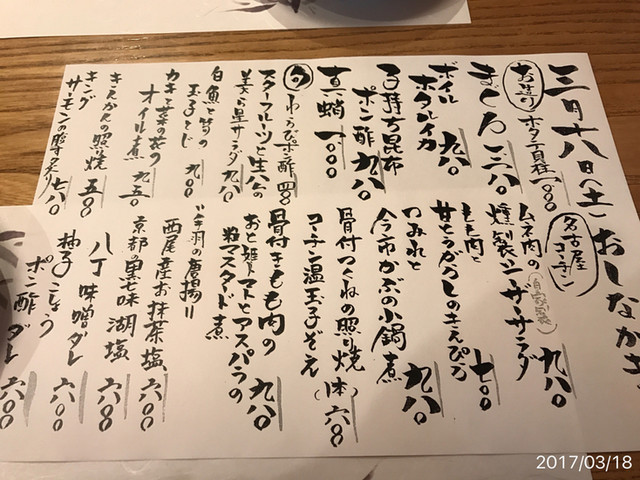 三月十八日(土)おしながき
お造り ホタテ貝柱 一〇〇〇
まぐろ 一二八〇
ボイル
ホタルイカ 九八〇
子持ち昆布
ポン酢 九八〇
真蛸 一〇〇〇
旬 わらびポン酢 四八〇
スターフルーツと生ハムの
サラダ 九八〇
白魚と筍の
玉子とじ 九〇〇
カキと菜の花の
オイル煮 九五〇
きんかんの照り焼 五〇〇
キング
サーモンの照り焼 七八〇
名古屋
コーチン
ムネ肉の
燻製シーザーサラダ 九八〇
(自家製)
もも肉と
甘とうがらしのきんぴら 七〇〇
つみれと
今市かぶの小鍋煮 九八〇
骨付つくねの照り焼(一本) 六八〇
コーチン温玉子ぞえ
骨付きもも肉の
トマトとアスパラの
粒マスタード煮 九八〇
"手羽の唐揚"
西尾産お抹茶塩 六〇〇
京都の黒七味 湖塩 六〇〇
八丁味噌ダレ 六〇〇
柚子こしょう
ポン酢ダレ 六〇〇
2017/03/18